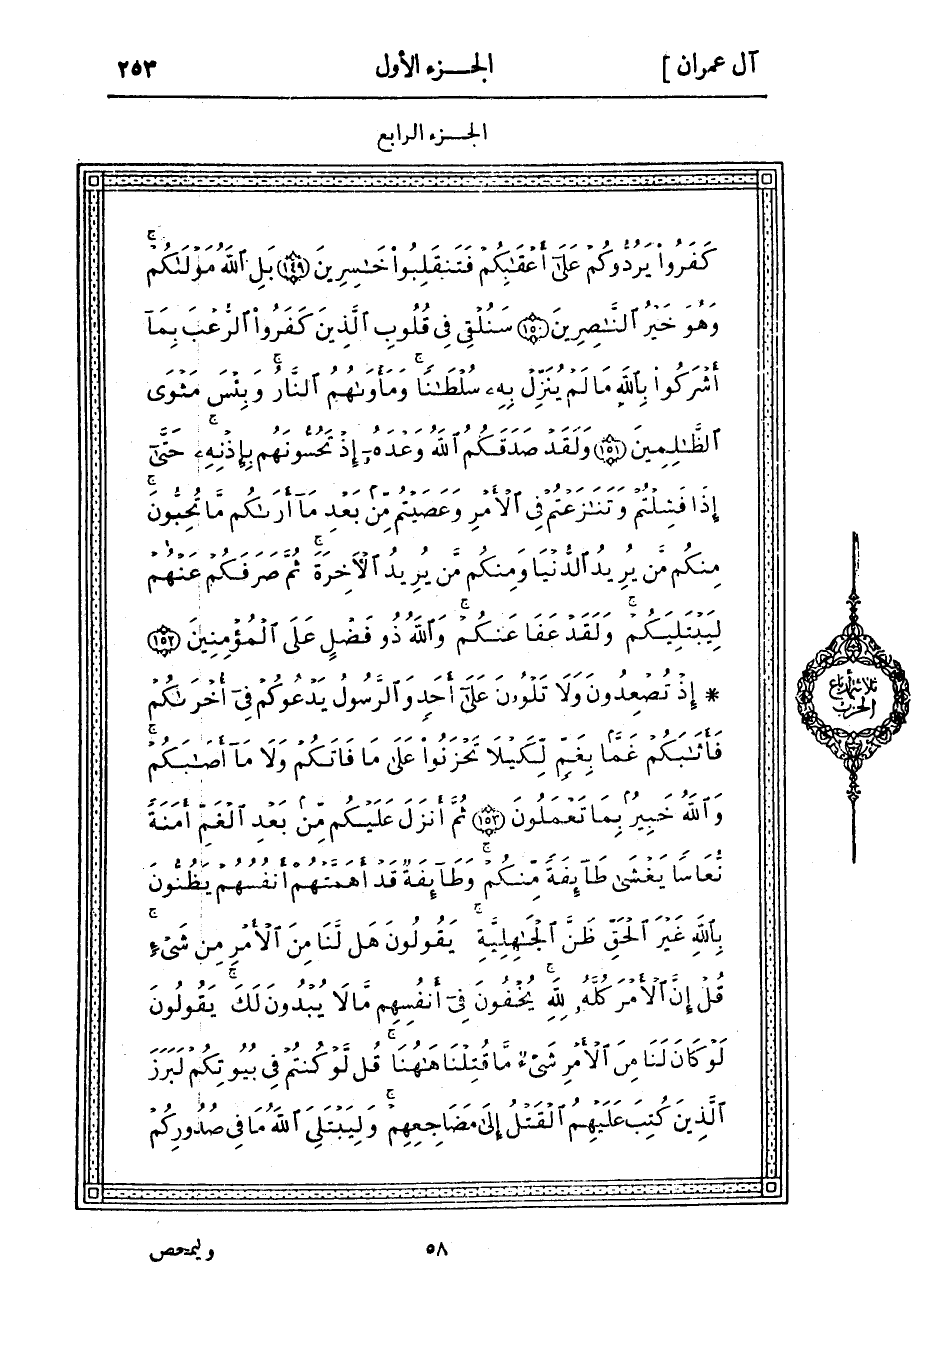 آل عمران ] الجـــزء الأول ٢٥٣
الجـــزء الرابع
كَفَرُوا۟ يَرُدُّوكُمْ عَلَىٰٓ أَعْقَٰبِكُمْ فَتَنقَلِبُوا۟ خَٰسِرِينَ ١٤٩ بَلِ ٱللَّهُ مَوْلَىٰكُمْ ۖ
وَهُوَ خَيْرُ ٱلنَّٰصِرِينَ ١٥٠ سَنُلْقِى فِى قُلُوبِ ٱلَّذِينَ كَفَرُوا۟ ٱلرُّعْبَ بِمَآ
أَشْرَكُوا۟ بِٱللَّهِ مَا لَمْ يُنَزِّلْ بِهِۦ سُلْطَٰنًا ۚ وَمَأْوَىٰهُمُ ٱلنَّارُ ۚ وَبِئْسَ مَثْوَى
ٱلظَّٰلِمِينَ ١٥١ وَلَقَدْ صَدَقَكُمُ ٱللَّهُ وَعْدَهُۥٓ إِذْ تَحُسُّونَهُم بِإِذْنِهِۦ ۚ حَتَّىٰٓ
إِذَا فَشِلْتُمْ وَتَنَٰزَعْتُمْ فِى ٱلْأَمْرِ وَعَصَيْتُم مِّنۢ بَعْدِ مَآ أَرَىٰكُم مَّا تُحِبُّونَ ۚ
مِنكُم مَّن يُرِيدُ ٱلدُّنْيَا وَمِنكُم مَّن يُرِيدُ ٱلْءَاخِرَةَ ۚ ثُمَّ صَرَفَكُمْ عَنْهُمْ
لِيَبْتَلِيَكُمْ ۚ وَلَقَدْ عَفَا عَنكُمْ ۚ وَٱللَّهُ ذُو فَضْلٍ عَلَى ٱلْمُؤْمِنِينَ ١٥٢
* إِذْ تُصْعِدُونَ وَلَا تَلْوُۥنَ عَلَىٰٓ أَحَدٍ وَٱلرَّسُولُ يَدْعُوكُمْ فِىٓ أُخْرَىٰكُمْ
فَأَثَٰبَكُمْ غَمًّۢا بِغَمٍّ لِّكَيْلَا تَحْزَنُوا۟ عَلَىٰ مَا فَاتَكُمْ وَلَا مَآ أَصَٰبَكُمْ ۗ
وَٱللَّهُ خَبِيرٌۢ بِمَا تَعْمَلُونَ ١٥٣ ثُمَّ أَنزَلَ عَلَيْكُم مِّنۢ بَعْدِ ٱلْغَمِّ أَمَنَةً
نُّعَاسًا يَغْشَىٰ طَآئِفَةً مِّنكُمْ ۖ وَطَآئِفَةٌ قَدْ أَهَمَّتْهُمْ أَنفُسُهُمْ يَظُنُّونَ
بِٱللَّهِ غَيْرَ ٱلْحَقِّ ظَنَّ ٱلْجَٰهِلِيَّةِ ۖ يَقُولُونَ هَل لَّنَا مِنَ ٱلْأَمْرِ مِن شَىْءٍ ۗ
قُلْ إِنَّ ٱلْأَمْرَ كُلَّهُۥ لِلَّهِ ۗ يُخْفُونَ فِىٓ أَنفُسِهِم مَّا لَا يُبْدُونَ لَكَ ۖ يَقُولُونَ
لَوْ كَانَ لَنَا مِنَ ٱلْأَمْرِ شَىْءٌ مَّا قُتِلْنَا هَٰهُنَا ۗ قُل لَّوْ كُنتُمْ فِى بُيُوتِكُمْ لَبَرَزَ
ٱلَّذِينَ كُتِبَ عَلَيْهِمُ ٱلْقَتْلُ إِلَىٰ مَضَاجِعِهِمْ ۖ وَلِيَبْتَلِىَ ٱللَّهُ مَا فِى صُدُورِكُمْ
ثلاثة أرباع
الحزب
٥٨ وليمحص